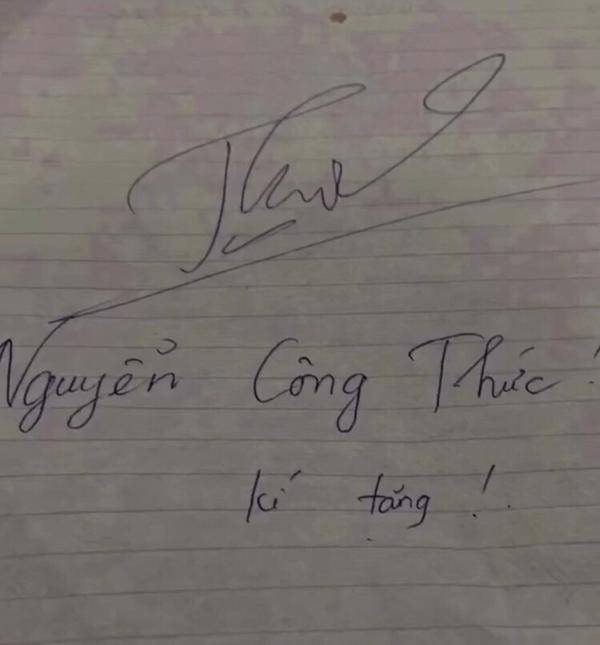 Nguyển Công Thức!
kí tặng!